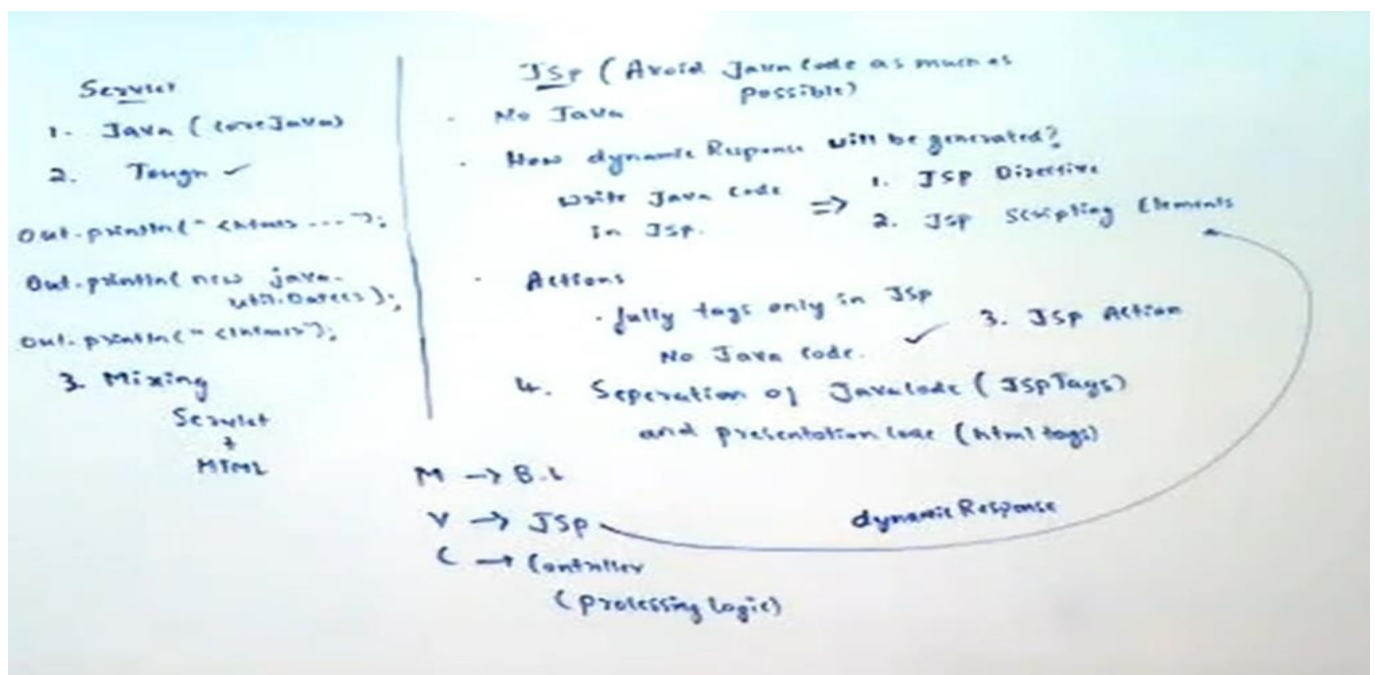 Servlet
1. Java (coreJava)
2. Tough ✓
Out.println("<html> ---");
Out.println(new java.
util.Date());
Out.println("</html>");
3. Mixing
Servlet
+
HTML
JSP (Avoid Java Code as much as
possible)
- No Java
- How dynamic Response will be generated?
Write Java Code
In JSP.
=> 1. JSP Directive
2. JSP Scripting Elements
- Actions
- fully tags only in JSP
No Java Code. ✓
3. JSP Action
4. Seperation of Java Code (JSP Tags)
and presentation Code (html tags)
M -> B.L
V -> JSP
C -> Controller
(processing logic)
dynamic Response